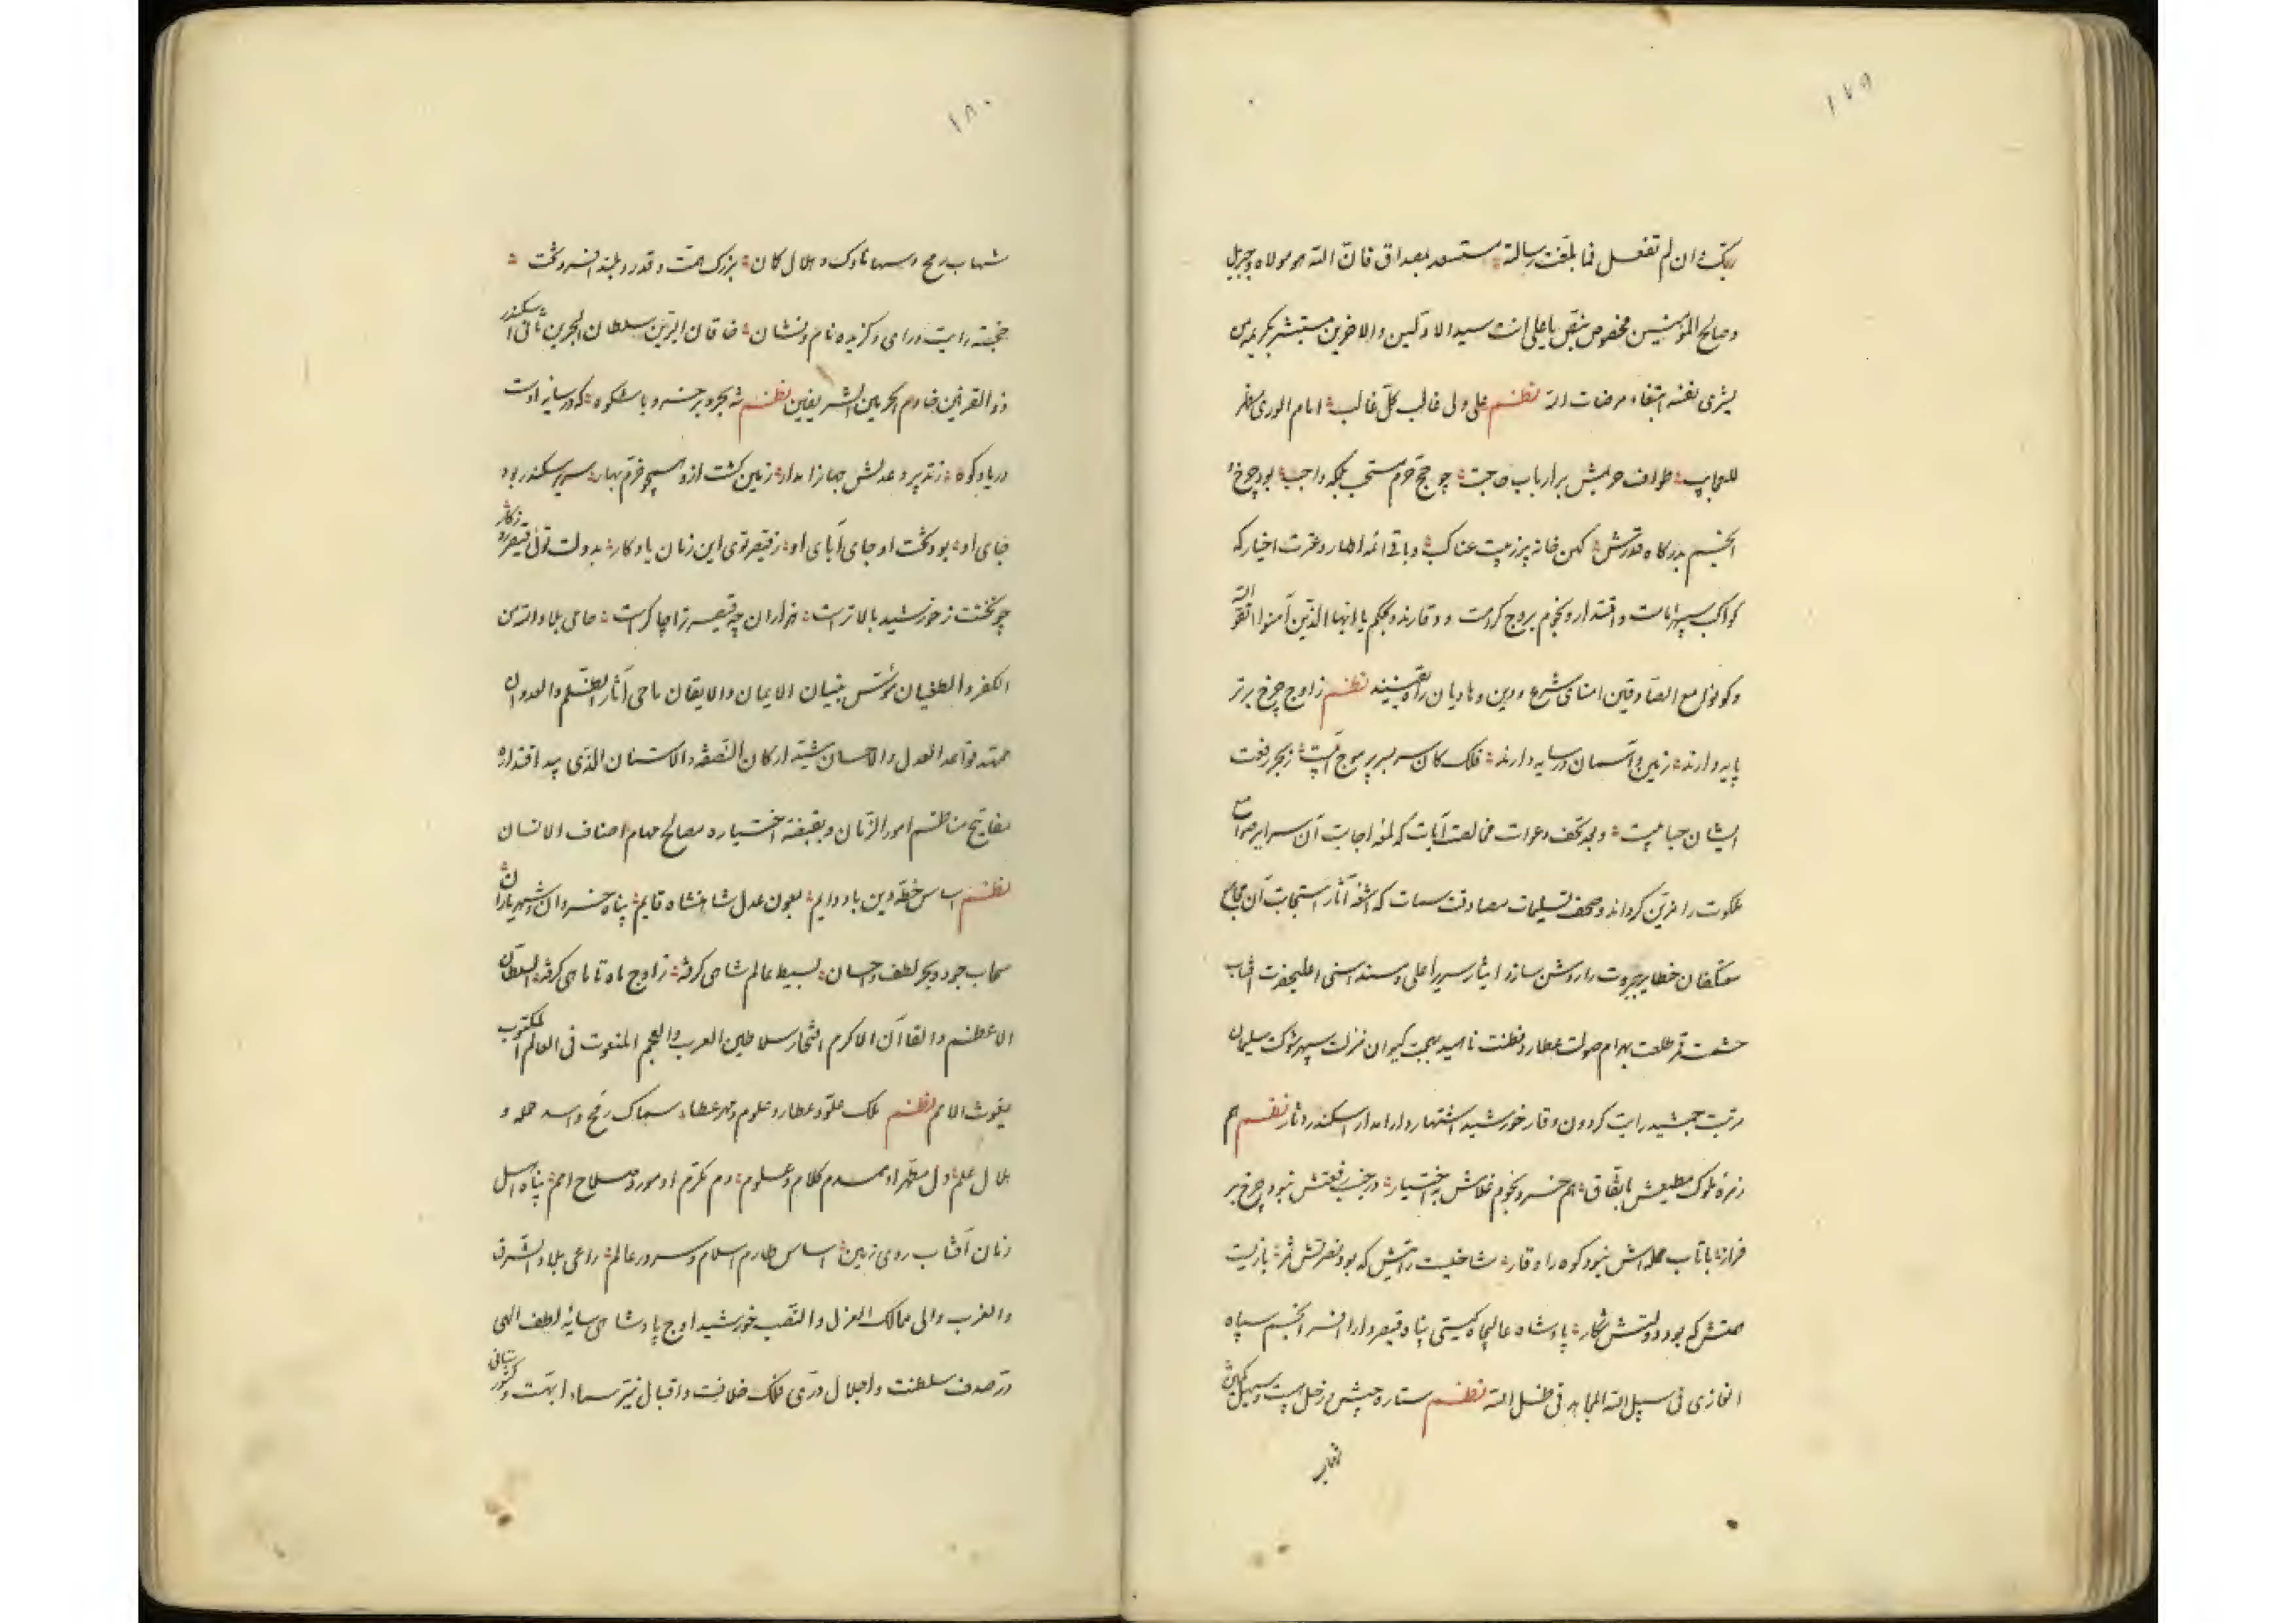 ۱۷۹
ربک و ان لم تفعل فما بلغت رسالته مستسعد بمصداق فان الله هو مولاه و جبریل
و صالح المؤمنین مخصوص بنص یا علی انت سید الاولین و الاخرین مستبشر بکریمه من
یشری نفسه ابتغاء مرضات الله نظم علی ولی غالب کل غالب امام الوری مظهر
للعجایب طواف حریمش بر ارباب حاجت چو حج حرم مستحب بلکه واجب بود چرخ و
انجم بدرگاه قدرش کهن خانه پر ز بیت عناکب و باقی ائمه اطهار و عترت اخیار که
کواکب سپهر امامت و اقتدار و نجوم بروج کرامت و وقارند و بحکم یا ایها الذین آمنوا اتقوا الله
و کونوا مع الصادقین امنای شرع و دین و هادیان راه یقینند نظم ز اوج چرخ برتر
پایه دارند زمین و آسمان در سایه دارند فلک کان سر بسر پر موج آبست ز بحر رفعت
ایشان حبابیست و بعد تحف دعوات مخالصت آیات که لمعه اجابت آن سرایر صوامع
ملکوت را مزین گرداند و صحف تسلیمات مصادقت سمات که اشعه آثار استجابت آن مجامع
معتکفان خطایر جبروت را روشن سازد ایثار سریر اعلی و مسند اسنی اعلیحضرت آفتاب
حشمت قمر طلعت بهرام صولت عطارد فطنت ناهید بهجت کیوان منزلت سپهر شوکت سلیمان
مرتبت جمشید رایت گردون وقار خورشید اشتهار دارا مدار اسکندر آثار نظم هم
زمره ملوک مطیعش باتفاق هم خسرو نجوم غلامش باختیار در جنب رفعتش نبود چرخ بر
فراز با تاب حمله‌اش نبود کوه را وقار شاخیست رایتش که بود نصرتش ثمر بازیست
همتش که بود دولتش شکار پادشاه عالیجاه گیتی پناه قیصر دارا افسر انجم سپاه
الغازی فی سبیل الله المجاهد فی ظل الله نظم ستاره جیش و زحل هیبت و سهیل کمان
شهاب
۱۸۰
شهاب رمح و سها ناوک و هلال کمان بزرگ همت و قدر و بلند افسر و تخت
خجسته رایت و رای و گزیده نام و نشان خاقان البرین سلطان البحرین ثانی اسکندر
ذو القرنین خادم الحرمین الشریفین نظم شه بحر و بر خسرو با شکوه که در سایه اوست
دریا و کوه ز تدبیر و عدلش جهانرا مدار زمین گشت ازو همچو خرم بهار سریر سکندر بود
جای او بود تخت او جای آبای او ز قیصر توی این زمان یادگار بدولت توئی قیصر روزگار
چو تختت ز خورشید بالاترست هزاران چه قیصر ترا چاکرست حامی بلاد الله من
الکفر و الطغیان مؤسس بنیان الایمان و الایقان ماحی آثار الظلم و العدوان
ممهد قواعد العدل و الاحسان مشید ارکان النصفه و الامتنان الذی بید اقتداره
مفاتیح مناظم امور الزمان و بقبضة اختیاره مصالح مهام اصناف الانسان
نظم اساس خطه دین باد دایم بعون عدل شاهنشاه قایم پناه خسروان و شهریاران
سحاب جود و بحر لطف و احسان بسیط عالم شاهی گرفته ز اوج ماه تا ماهی گرفته السلطان
الاعظم و القاآن الاکرم افتخار سلاطین العرب و العجم المنعوت فی العالم المکتوب
بغوث الامم نظم ملک علو و عطارد علوم و مهر عطا سماک رمح و اسد حمله و
هلال علم دل مطهر او همدم کلام و علوم دم مکرم او مورد صلاح امم پناه اهل
زمان آفتاب روی زمین اساس طارم اسلام و سرور عالم راعی بلاد الشرق
و الغرب والی ممالک العزل و النصب خورشید اوج پادشاهی سایه لطف الهی
در صدف سلطنت و اجلال دری فلک خلافت و اقبال نیر سماء ابهت و کشورستانی